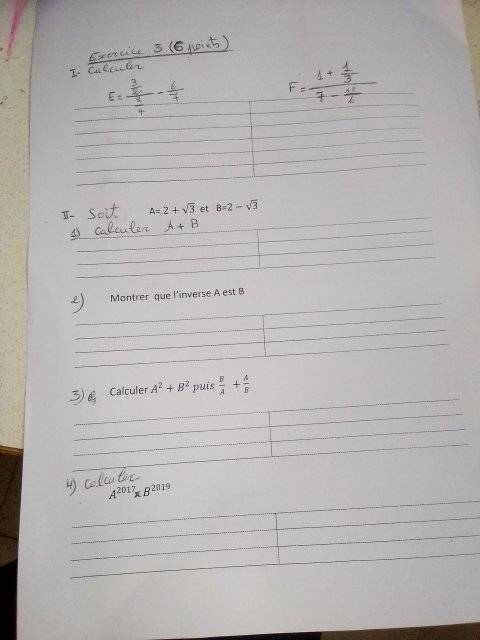 Exercice 3 (6 points)
I- Calculer
E = - 6/7 F = (1 + 1/3)/(7 - )
II- Soit A= 2 + √3 et B=2 − √3
1) calculer A + B
2) Montrer que l'inverse A est B
3) Calculer A² + B² puis B/A + A/B
4) calculer
A²⁰¹⁷ x B²⁰¹⁹